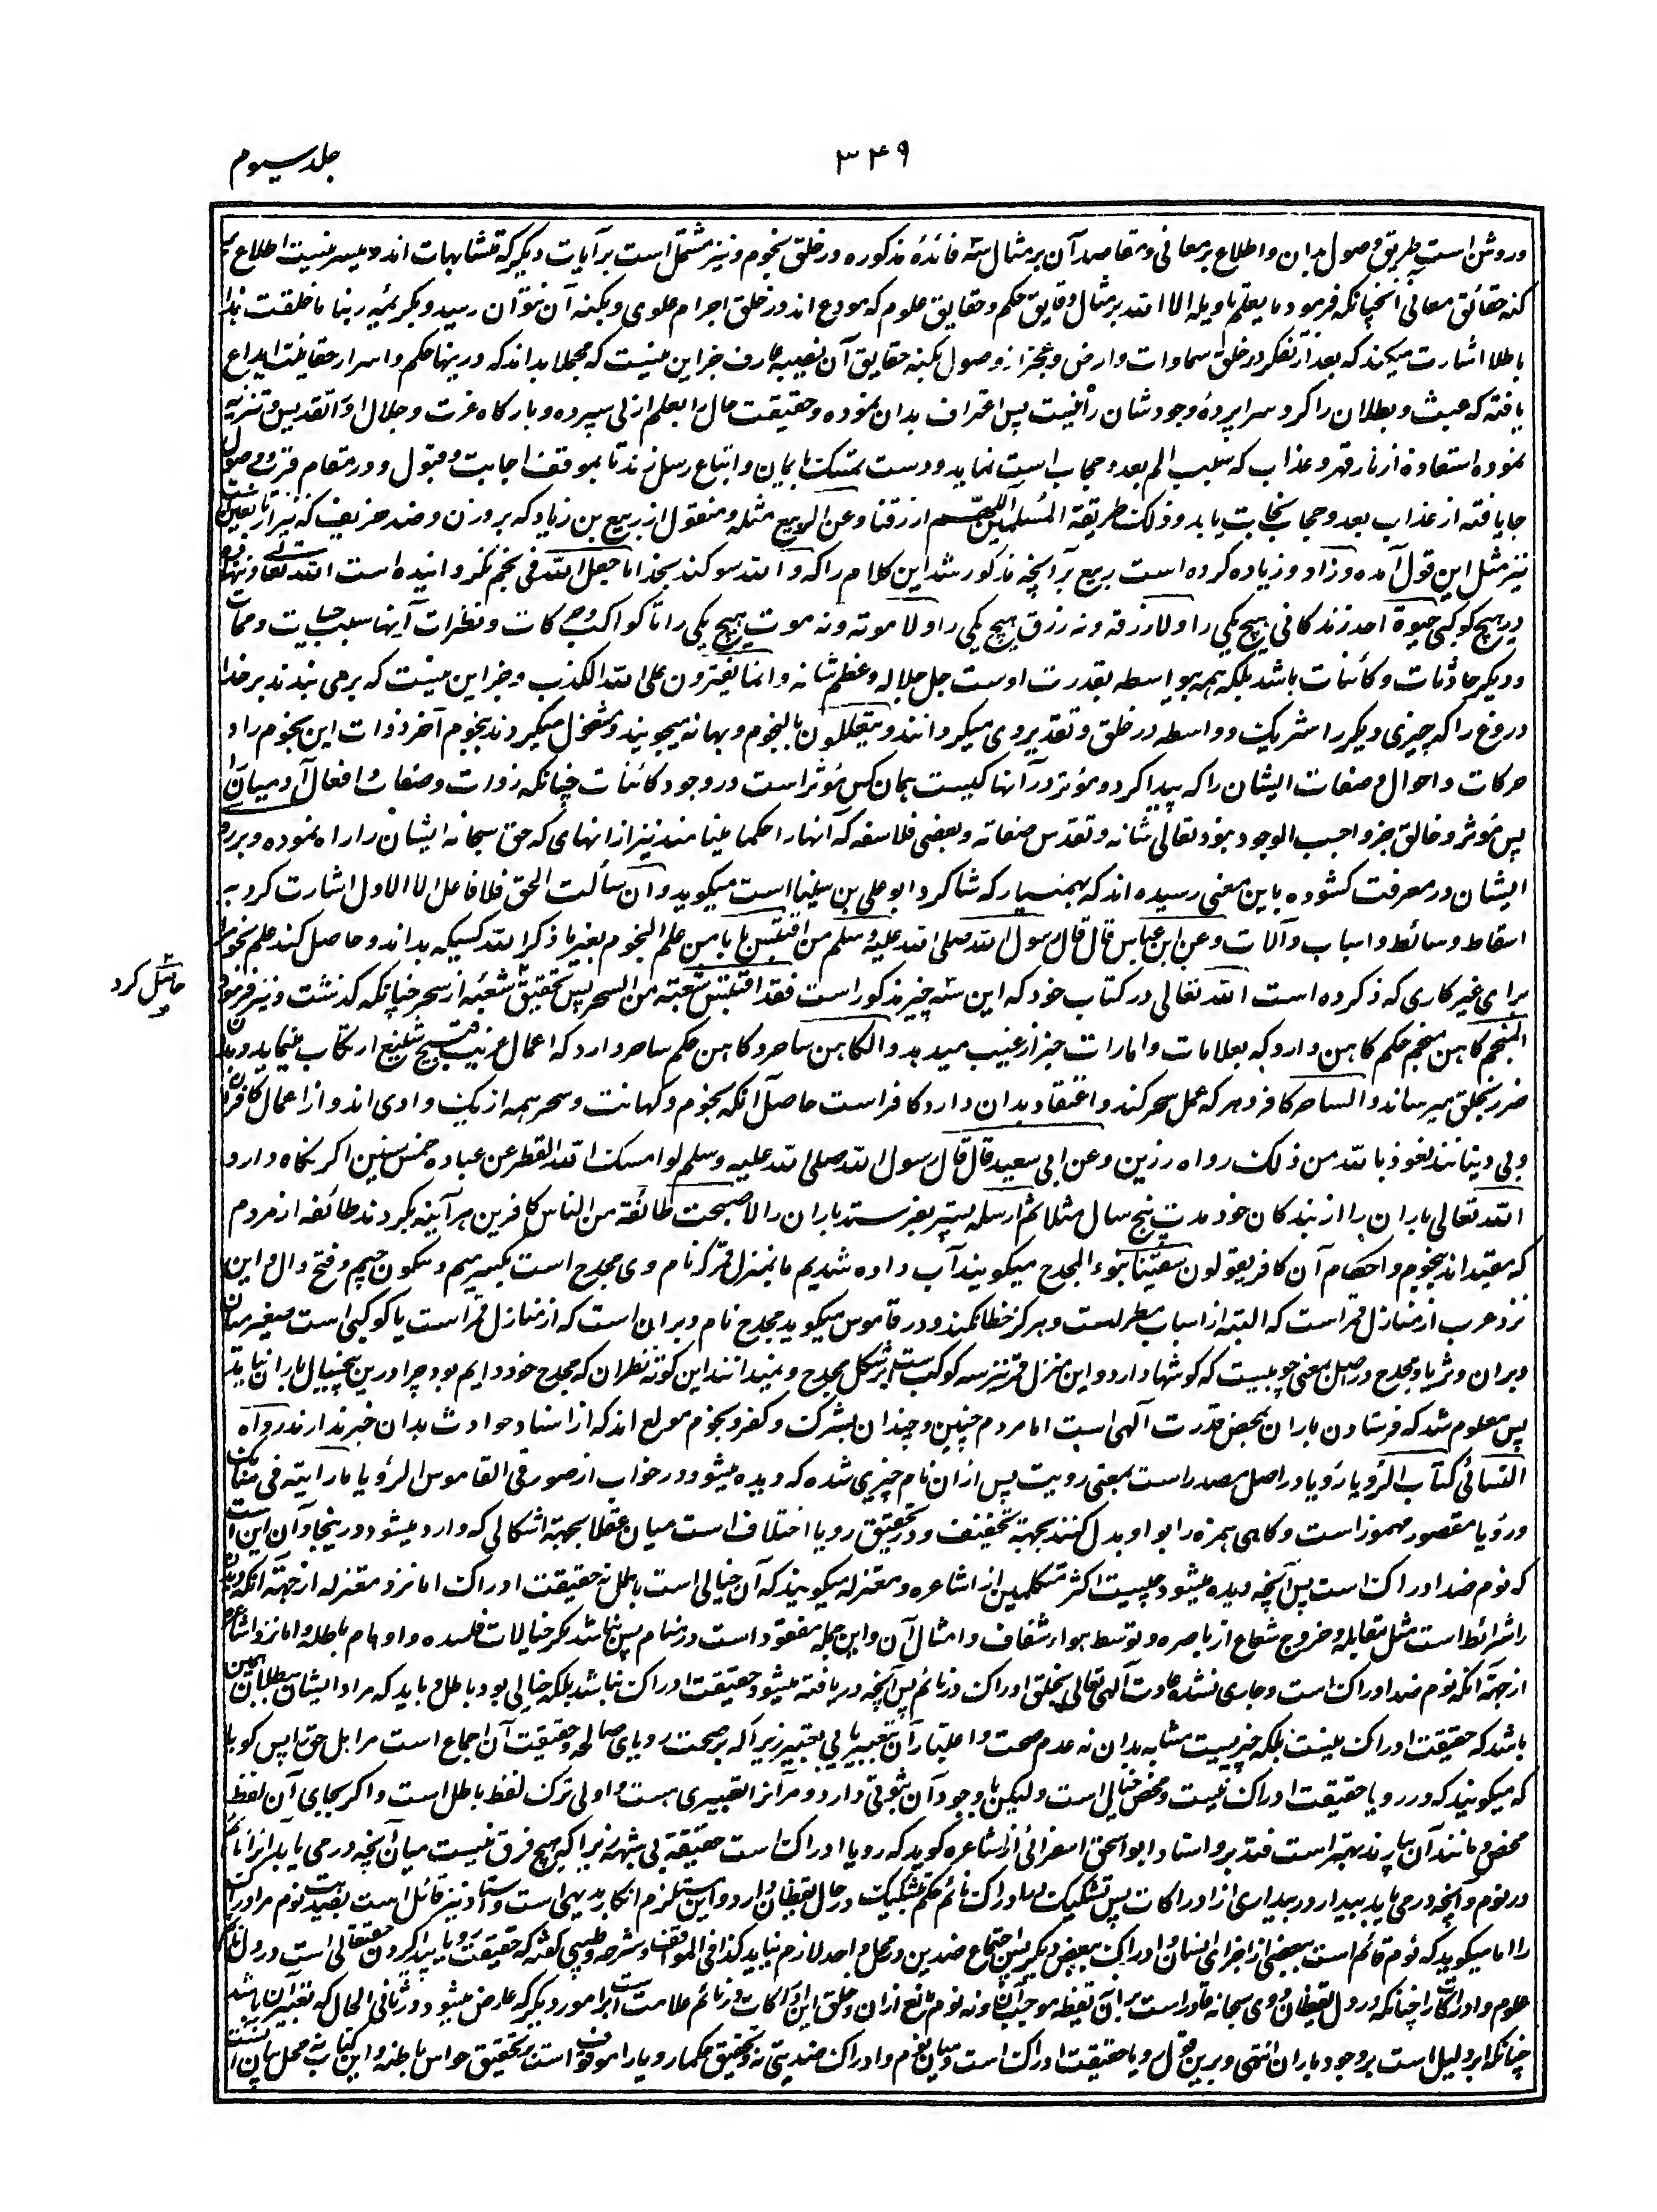 جلد سیوم
۳۴۹
وروشن است طریق وصول بدان واطلاع بر معانی ومقاصد آن بر مثال سه فائدۀ مذکوره در خلق نجوم ونیز مشتمل است بر آیات دیگر که متشابهات اند ومیسر نیست اطلاع بر
کنه حقائق معانی آن چنانکه فرمود ما یعلم تاویله الا الله بر مثال دقایق حکم وحقایق علوم که مودع اند در خلق اجرام علوی وبکنه آن نتوان رسید وبکریمۀ ربنا ما خلقت هذا
باطلا اشارت میکند که بعد از تفکر در خلق سماوات وارض وعجز از وصول بکنه حقایق آن نصیبه عارف جز این نیست که مجملا بداند که درینها حکم واسرار حقانیت ایداع
یافته که عبث وبطلان را گرد سراپردۀ وجود شان راه نیست پس اعتراف بدان نموده وحقیقت حال را بعلم ازلی سپرده وبارگاه عزت وجلال او را تقدیس وتنزیه
نموده استعاذه از نار قهر وعذاب که سلب الم بعد وحجاب است نماید ودست تمسک بایمان واتباع رسل زند تا بموقف اجابت وقبول ودر مقام قرب ووصول
جا یافته از عذاب بعد وحجاب نجات یابد وذلک طریقة المسلمین اللهم ارزقنا وعن الربیع مثله ومنقول از ربیع بن زیاد که بر وزن وضد خریف که نیز از تابعین است
نیز مثل این قول آمده وزاد وزیاده کرده است ربیع بر آنچه مذکور شد این کلام را که والله سوگند بخدا ما جعل الله فی نجم نگردانیده است الله تعالی ونهاده
در هیچ کوکبی حیوة احد زندگانی هیچ یکی را ولا رزقه ونه رزق هیچ یکی را ولا موته ونه موت هیچ یکی را تا کواکب وحرکات ونظرات آنها سبب حیات وممات
ودیگر حادثات وکائنات باشد بلکه همه بیواسطه بقدرت اوست جل جلاله وعظم شانه وانما یفترون علی الله الکذب وجز این نیست که بر می بندند بر خدا
دروغ را که چیزی دیگر را شریک وواسطه در خلق وتقدیر وی میگردانند ویتعللون بالنجوم وبهانه میجویند ومشغول میگردند بنجوم آخر ذوات این نجوم را و
حرکات واحوال وصفات ایشان را که پیدا کرد ومؤثر در آنها کیست همان کس مؤثر است در وجود کائنات چنانکه ذوات وصفات وافعال آدمیان را
پس مؤثر وخالق جز واجب الوجود نبود تعالی شانه وتقدس صفاته وبعضی فلاسفه که آنها را حکما مینامند نیز از آنهای که حق سبحانه ایشان را راه نموده ودر بر
ایشان در معرفت کشوده باین معنی رسیده اند که بهمنیار که شاگرد ابو علی بن سینا است میگوید وآن سألت الحق فلا فاعل الا الاول اشارت کرد به
اسقاط وسائط واسباب وآلات وعن ابن عباس قال قال رسول الله صلی الله علیه وسلم من اقتبس بابا من علم النجوم بغیر ما ذکر الله کسیکه بداند وحاصل کند علم نجوم را
برای غیر کاری که ذکر کرده است الله تعالی در کتاب خود که این سه چیز مذکور است فقد اقتبس شعبة من السحر پس تحقیق شعبۀ از سحر چنانکه گذشت ونیز فرمود
حاصل کرد
المنجم کاهن منجم حکم کاهن دارد که بعلامات وامارات خبر از غیب میدهد والکاهن ساحر وکاهن حکم ساحر دارد که اعمال غریب قبیح شنیع ارتکاب مینماید وبدان
ضرر بخلق میرساند والساحر کافر وهر که عمل سحر کند واعتقاد بدان دارد کافر است حاصل آنکه نجوم وکهانت وسحر همه از یک وادی اند واز اعمال کافران
وبی دینانند نعوذ بالله من ذلک رواه رزین وعن ابی سعید قال قال رسول الله صلی الله علیه وسلم لو امسک الله القطر عن عباده خمس سنین اگر نگاه دارد
الله تعالی باران را از بندگان خود مدت پنج سال مثلا ثم ارسله پستر بفرستد باران را لاصبحت طائفة من الناس کافرین هر آینه بگردند طائفه از مردم
که مقید اند بنجوم واحکام آن کافر یقولون سقینا بنوء المجدح میگویند آب داده شدیم ما بمنزل قمر که نام وی مجدح است بکسر میم وسکون جیم وفتح دال واین
نزد عرب از منازل قمر است که البته از اسباب مطر است وهرگز خطا نکند ودر قاموس میگوید مجدح نام دبران است که از منازل قمر است یا کوکبی است صغیر میان
دبران وثریا ومجدح در اصل بمعنی چوبیست که گوشها دارد واین منزل قمر نیز سه کوکب است بر شکل مجدح ونمیدانند این کوته نظران که مجدح خود دایم بود چرا درین پنج سال باران نیاید
پس معلوم شد که فرستادن باران بمحض قدرت آلهی است اما مردم چنین وچندان بشرک وکفر ونجوم مولع اند که از اسناد حوادث بدان خبر ندارند رواه
النسائی کتاب الرؤیا رؤیا در اصل مصدر است بمعنی رویت پس ازان نام چیزی شده که دیده میشود در خواب از صور فی القاموس الرؤیا ما رایته فی منامک
ورؤیا مقصور مهموز است وگاهی همزه را بواو بدل کنند بجهة تخفیف ودر تحقیق رویا اختلاف است میان عقلا بجهة اشکالی که وارد میشود درینجا وآن این است
که نوم ضد ادراک است پس آنچه دیده میشود چیست اکثر متکلمین از اشاعره ومعتزله میگویند که آن خیالی است باطل نه حقیقت ادراک اما نزد معتزله از جهة آنکه ادراک
را شرائط است مثل مقابله وخروج شعاع از باصره وتوسط هوا شفاف وامثال آن واین جمله مفقود است در منام پس نباشد مگر خیالات فاسده واوهام باطله واما نزد اشاعره
از جهة آنکه نوم ضد ادراک است وجاری نشده عادت آلهی تعالی بخلق ادراک در نائم پس آنچه دریافته میشود حقیقت ادراک نباشد بلکه خیالی بود باطل وباید که مراد ایشان ببطلان همین
باشد که حقیقت ادراک نیست بلکه چیزیست مشابه بدان نه عدم صحت واعتبار آن بتعبیر یا بی تعبیر زیرا که بر صحت رویای صالحه وحقیقت آن اجماع است مر اهل حق را پس گویا
که میگویند که در رویا حقیقت ادراک نیست ومحض خیالی است ولیکن باوجود آن ثبوتی دارد ومر آنرا تعبیری هست واولی ترک لفظ باطل است واگر بجای آن لفظ
محض ومانند آن بیارند بهتر است فتدبر واستاد ابو اسحق اسفرائنی از اشاعره گوید که رویا ادراک است حقیقة بی شبهه زیرا که هیچ فرق نیست میان آنچه در می یابد از انائم
در نوم وآنچه در می یابد بیدار در بیداری از ادراکات پس تشکیک در ادراک نائم حکم تشکیک در حال یقظان دارد واین مستلزم انکار بدیهی است واستاد نیز قائل است بضدیت نوم مر ادراک
را اما میگوید که نوم قائم است ببعضی از اجزای انسان وادراک ببعض دیگر پس اجتماع ضدین در محل واحد لازم نیاید کذا فی المواقف وشرحه وطیبی گفته که حقیقت رویا پیدا کردن حقتعالی است در دل نائم
علوم وادراکات را چنانکه در دل یقظان ووی سبحانه قادر است بران نه یقظه موجب آن ونه نوم مانع ازان وخلق این ادراکات در نائم علامت است بر امور دیگر که عارض میشود در ثانی الحال که تعبیر آن باشد
چنانکه ابر دلیل است بر وجود باران انتهی وبرین قول رویا حقیقت ادراک است ومیان نوم وادراک ضدیتی نه وتحقیق حکما رویا را موقوف است بر تحقیق حواس باطنه واین کتاب نه محل بیان آنست